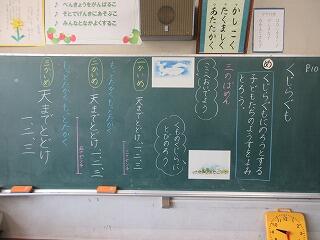 べんきょうをがんばるこ
そとでげんきにあそぶこ
みんなとなかよくするこ
かしこく
たくましく
あたたかく
P10
くじらぐも
め
くじらぐもにのろうとする
子どもたちのようすをよみ
とろう。
三のばめん
ここへおいでよう
くものくじらに
とびのろう。
一かいめ
天までとどけ、一、二、三
もっとたかく
二かいめ
天までとどけ、一、二、三
もっとたかく、もっとたかく
三かいめ
天までとどけ
一、二、三